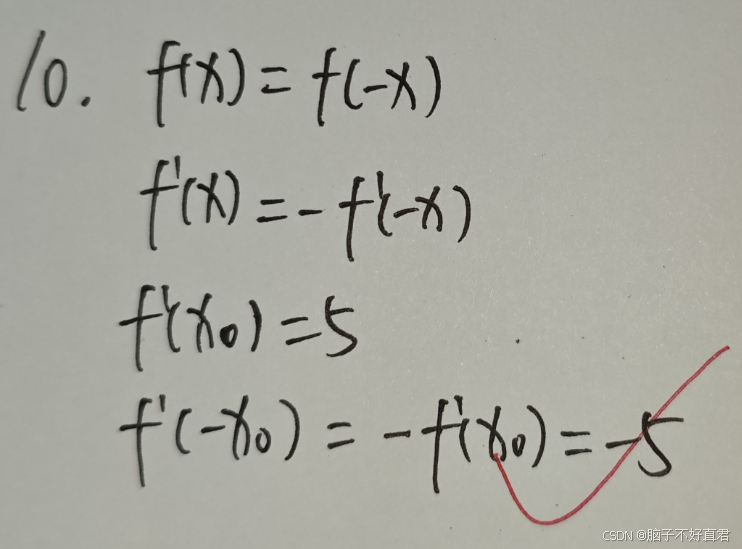 10. f(x) = f(-x)
f'(x) = -f'(-x)
f'(x₀) = 5
f'(-x₀) = -f'(x₀) = -5
CSDN @脑子不好直君